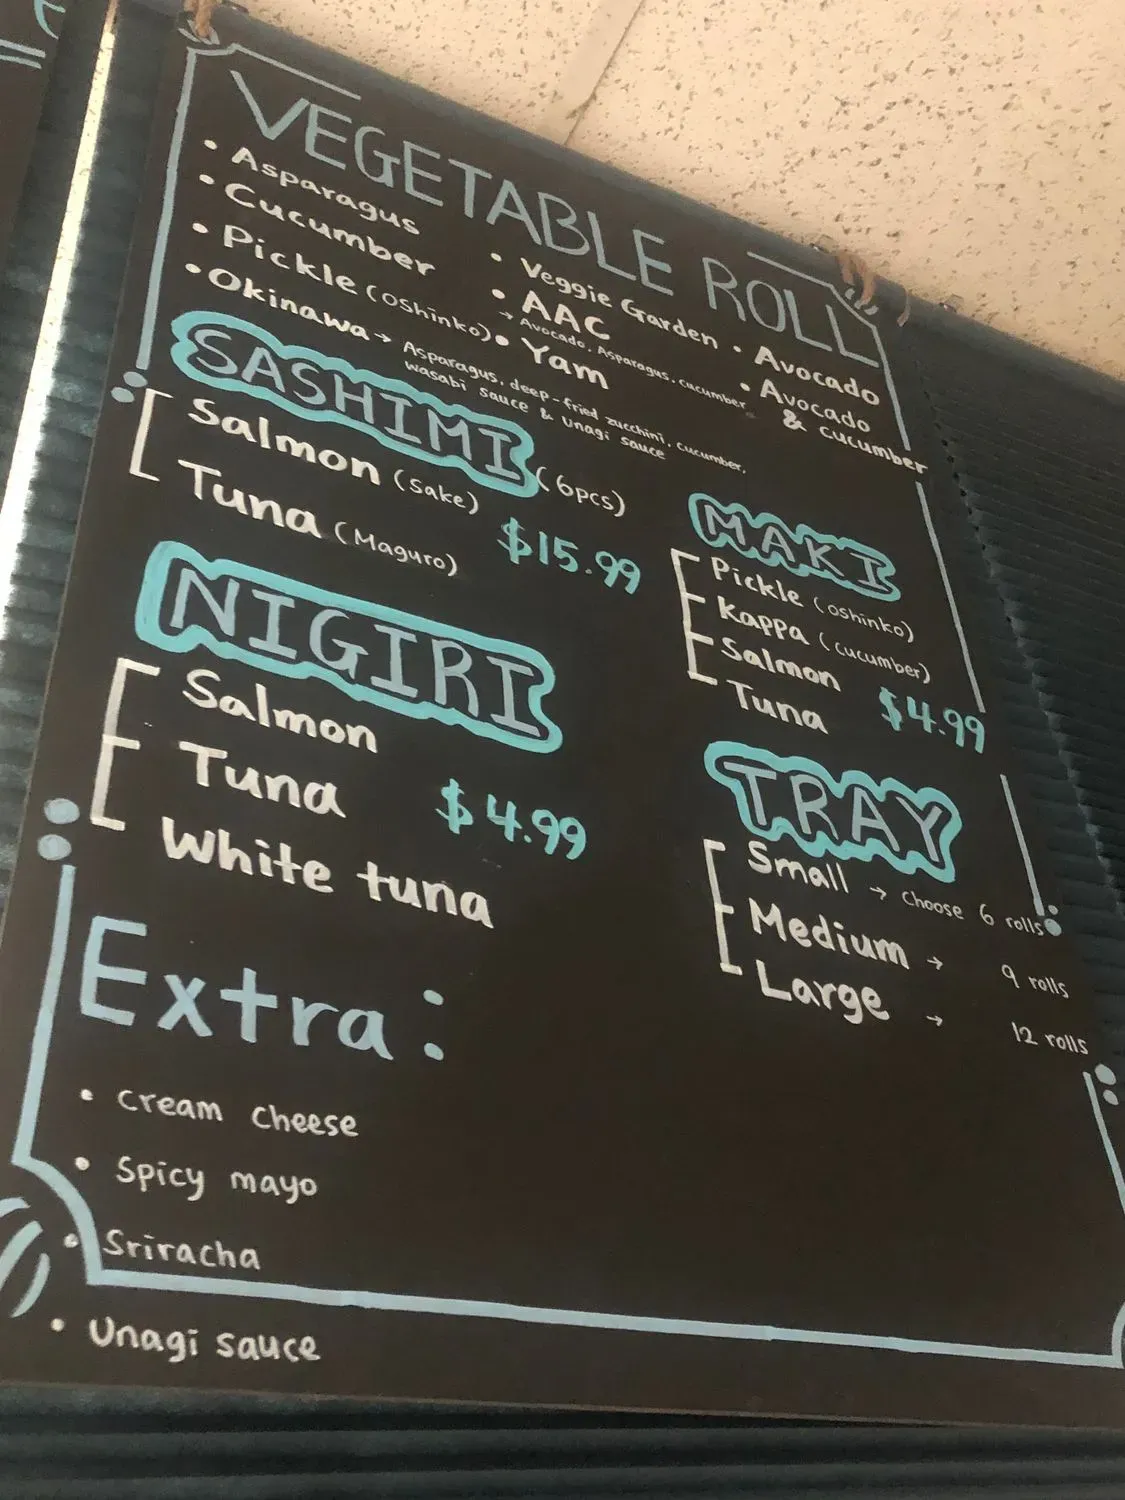 VEGETABLE ROLL
• Asparagus
• Cucumber
• Pickle (Oshinko)
• Okinawa → Asparagus, deep-fried zucchini, cucumber,
wasabi sauce & Unagi sauce
• Veggie Garden
• AAC
→ Avocado, Asparagus, cucumber
• Yam
• Avocado
• Avocado
& cucumber
SASHIMI (6pcs)
Salmon (Sake)
Tuna (Maguro)
$15.99
NIGIRI
Salmon
Tuna
White tuna
$4.99
MAKI
Pickle (oshinko)
Kappa (cucumber)
Salmon
Tuna
$4.99
TRAY
Small → Choose 6 rolls
Medium → 9 rolls
Large → 12 rolls
Extra:
• Cream cheese
• Spicy mayo
• Sriracha
• Unagi sauce